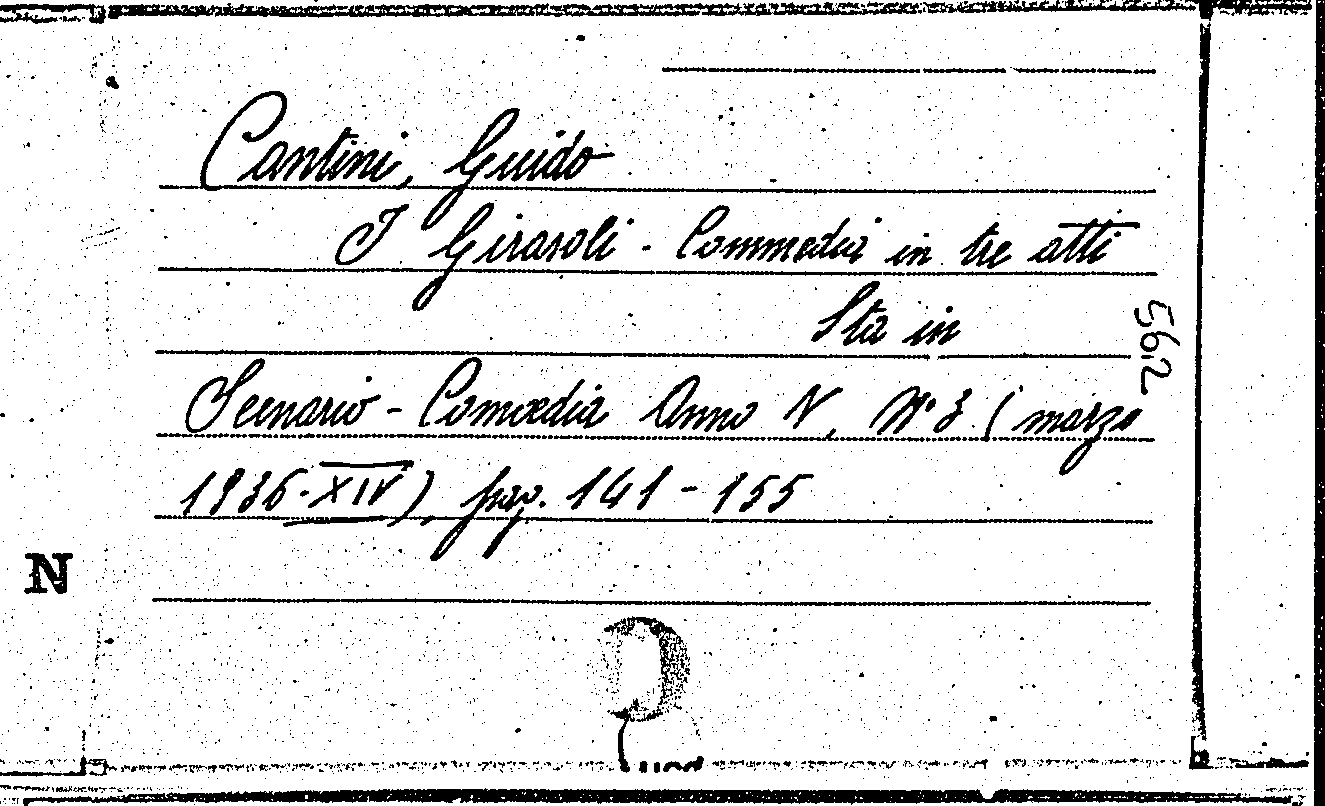 Cantini, Guido
I Girasoli - Commedia in tre atti
Sta in
562
Scenario - Comœdia Anno V, N° 3 (marzo
1936-XIV), pag. 141 - 155
N